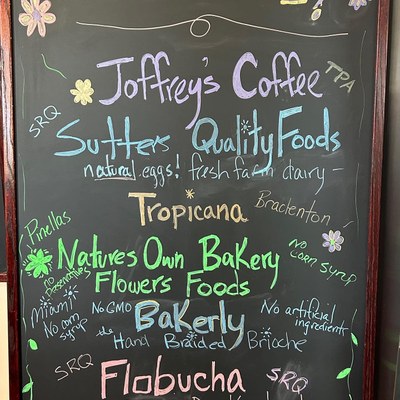 Joffrey's Coffee
TPA
SRQ
Sutters Quality Foods
natural eggs! fresh farm dairy -
Tropicana
Bradenton
Pinellas
Natures Own Bakery
No corn syrup
no preservatives
Flowers Foods
Miami
No GMO
Bakerly
No artificial
ingredients
No corn
syrup
the Hand Braided Brioche
SRQ
Flobucha
SRQ